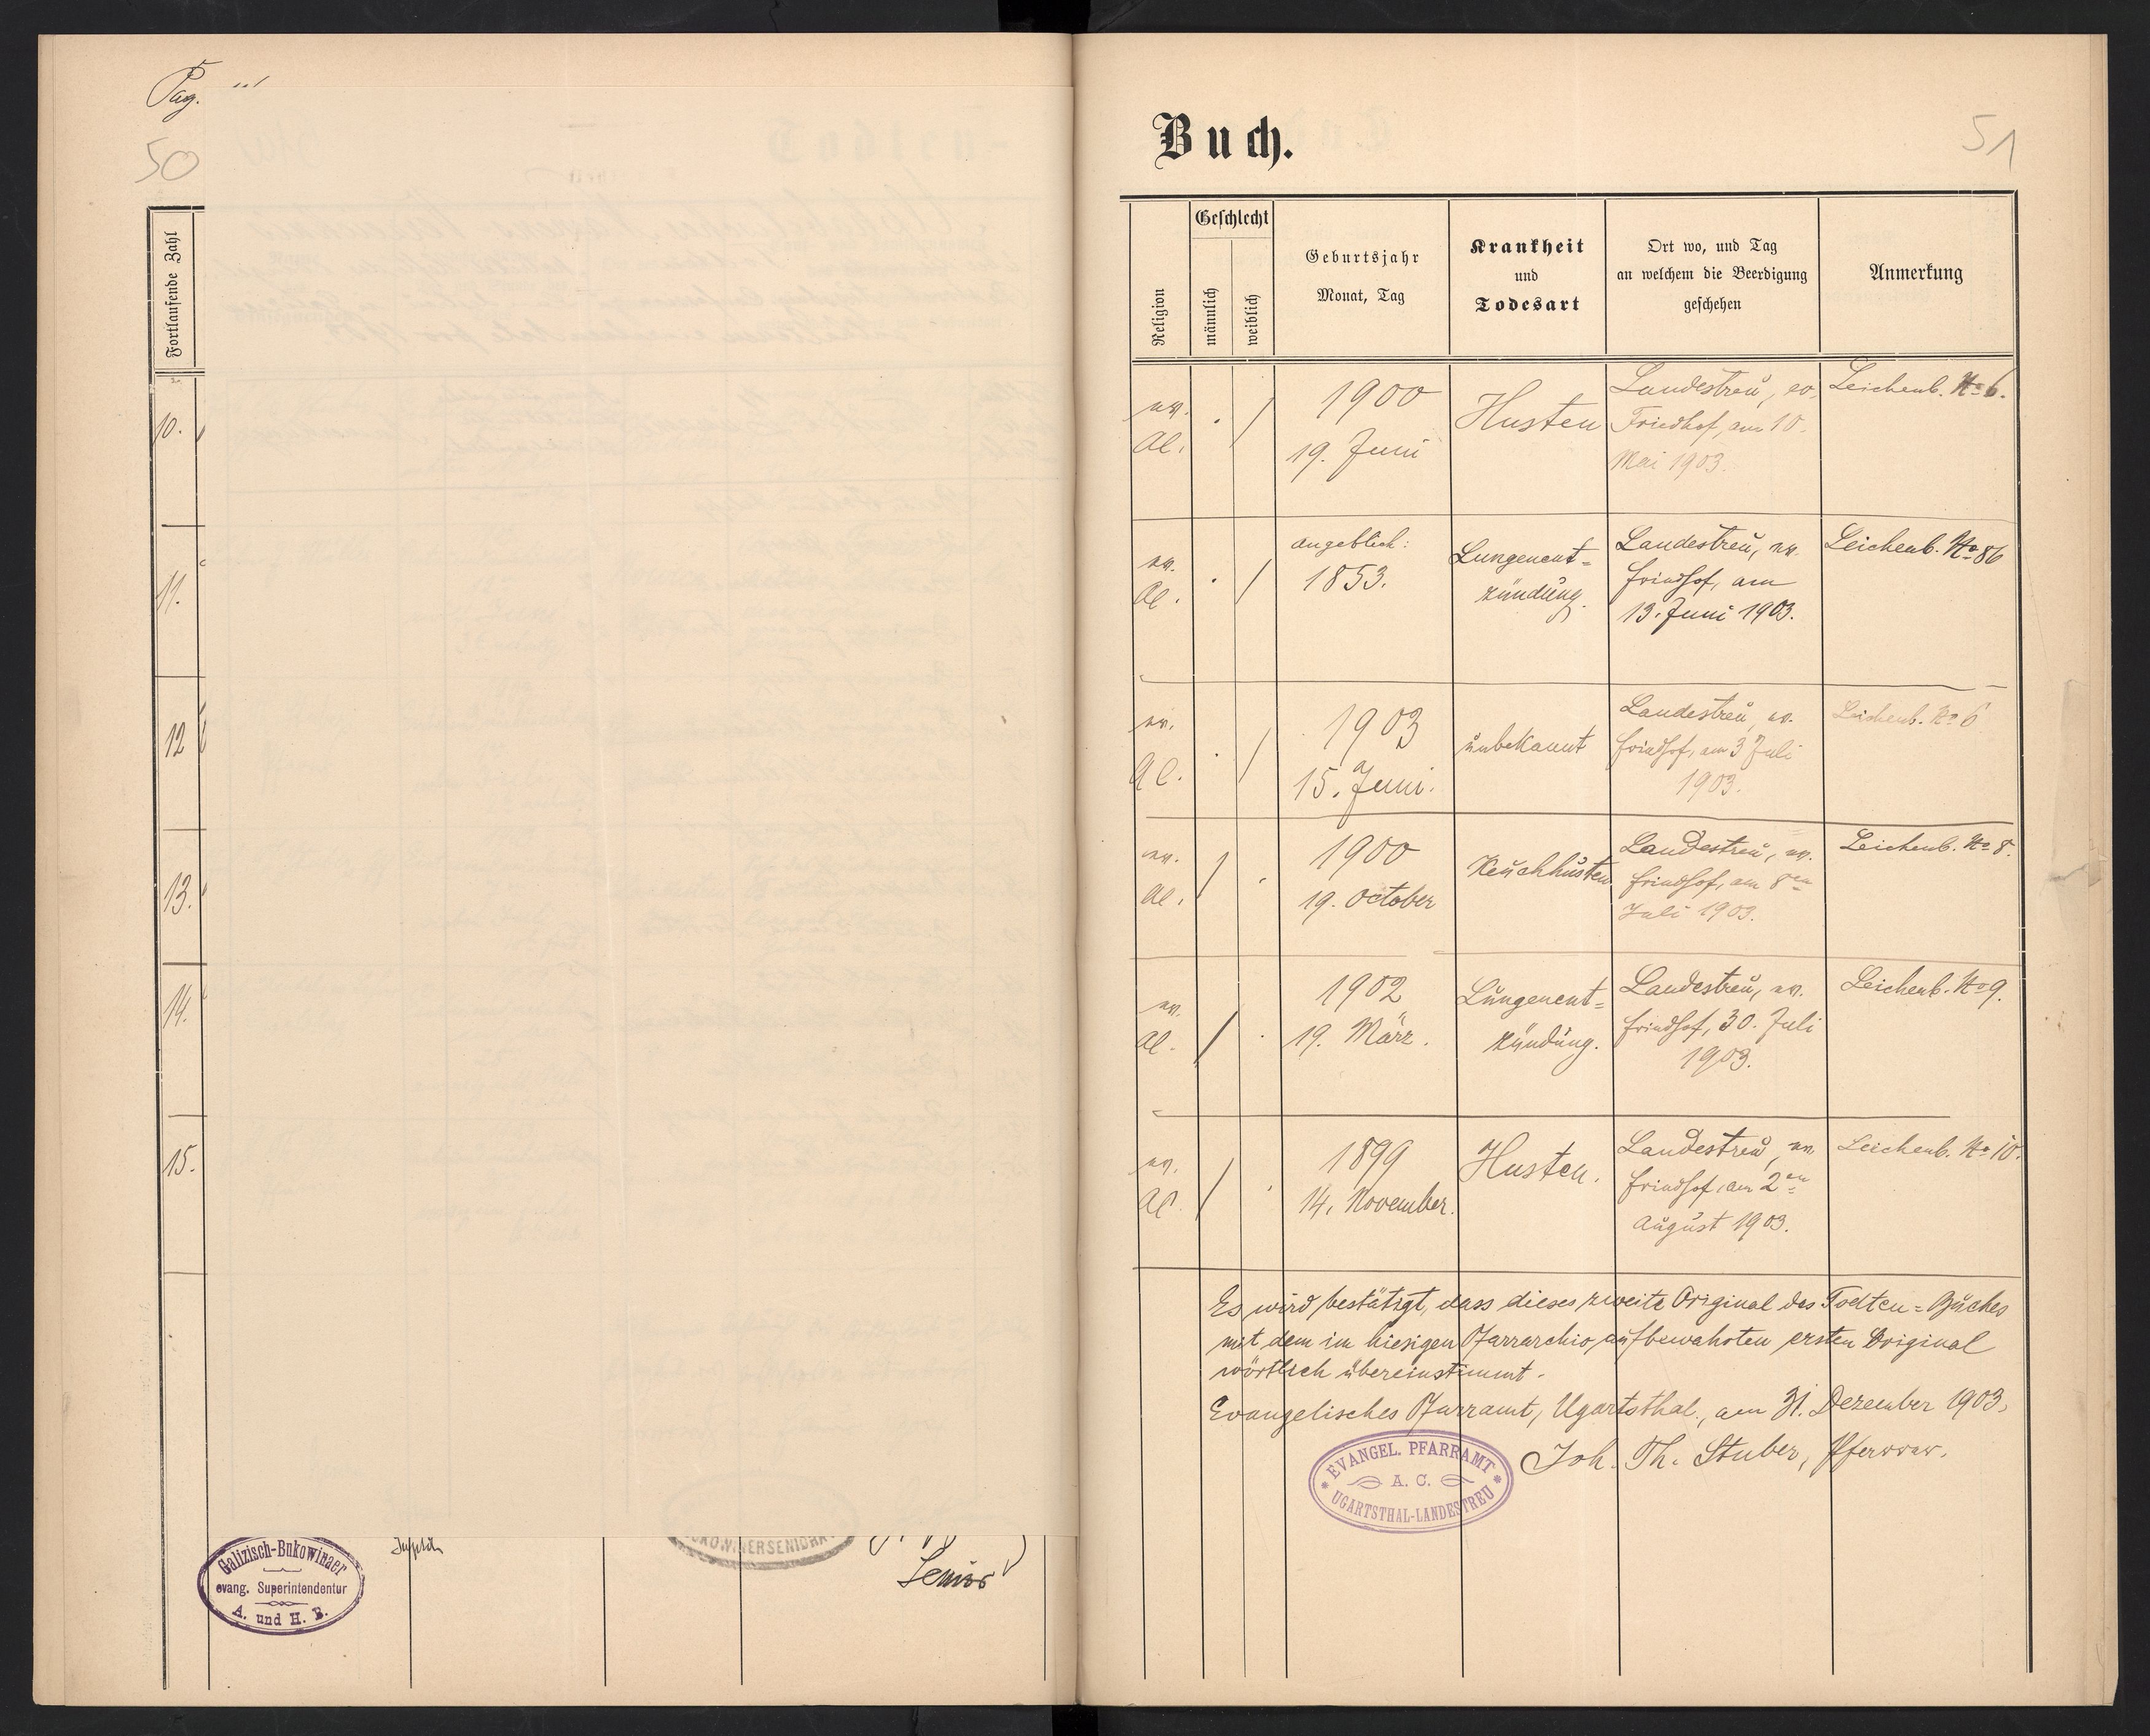 Pag.
50
Fortlaufende Zahl
10.
11.
12
13.
14.
15.
Galizisch-Bukowinaer
evang. Superintendentur
A. und H. B.
Senior
Buch.
51
Religion
Geschlecht
männlich
weiblich
Geburtsjahr
Monat, Tag
Krankheit
und
Todesart
Ort wo, und Tag
an welchem die Beerdigung
geschehen
Anmerkung
ev.
AC.
/
1900
19. Juni
Husten
Landestreu, ev.
Friedhof, am 10.
Mai 1903.
Leichenb. No 6.
ev.
AC.
/
angeblich:
1853.
Lungenent=
zündung.
Landestreu, ev.
Friedhof, am
13. Juni 1903.
Leichenb. No 86
ev.
AC.
/
1903
15. Juni.
unbekannt
Landestreu, ev.
Friedhof, am 3 Juli
1903.
Leichenb. No 6
ev.
AC.
/
1900
19. October
Keuchhusten
Landestreu, ev.
Friedhof, am 8en
Juli 1903.
Leichenb. No 8.
ev.
AC.
/
1902
19. März.
Lungenent=
zündung.
Landestreu, ev.
Friedhof, 30. Juli
1903.
Leichenb. No 9.
ev.
AC.
/
1899
14. November.
Husten.
Landestreu, ev.
Friedhof, am 2en
August 1903.
Leichenb. No 10.
Es wird bestätigt, dass dieses zweite Original des Todten=Buches
mit dem im hiesigen Pfarrarchiv aufbewahrten ersten Original
wörtlich übereinstimmt.
Evangelisches Pfarramt, Ugartsthal, am 31. Dezember 1903.
Joh. Th. Stuber, Pfarrer.
EVANGEL. PFARRAMT
A. C.
UGARTSTHAL-LANDESTREU